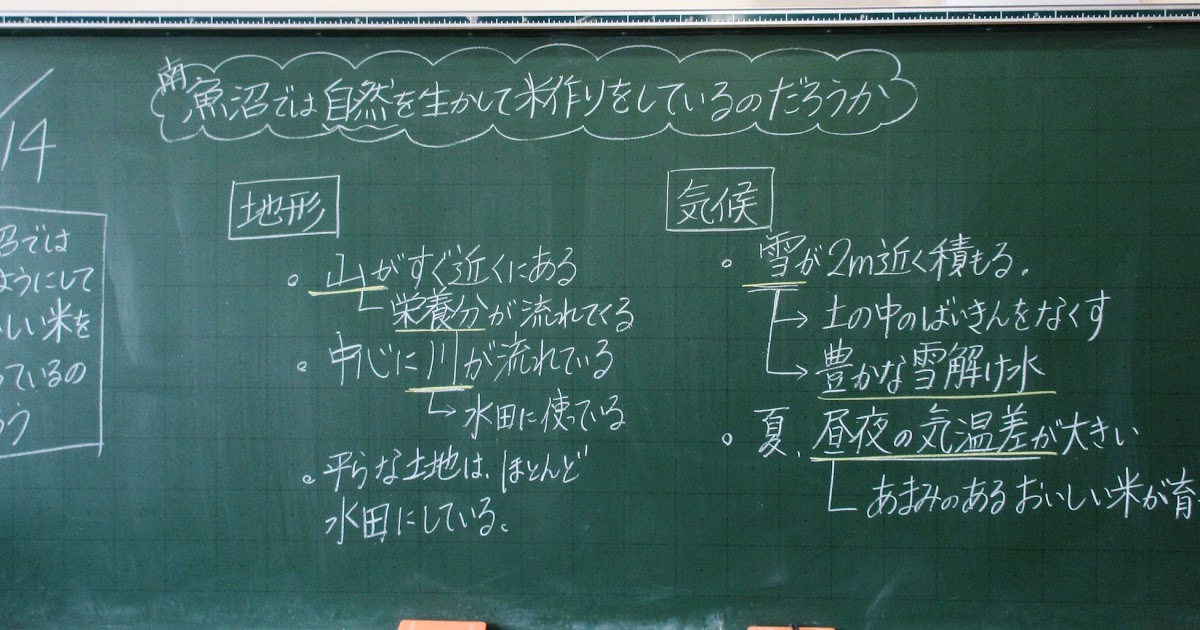 /14
南魚沼では自然を生かして米作りをしているのだろうか
沼では
ようにして
しい米を
っているの
ろう
地形
。山がすぐ近くにある
栄養分が流れてくる
。中心に川が流れている
→水田に使っている
。平らな土地は、ほとんど
水田にしている。
気候
。雪が2m近く積もる.
→土の中のばいきんをなくす
→豊かな雪解け水
。夏、昼夜の気温差が大きい
あまみのあるおいしい米が育